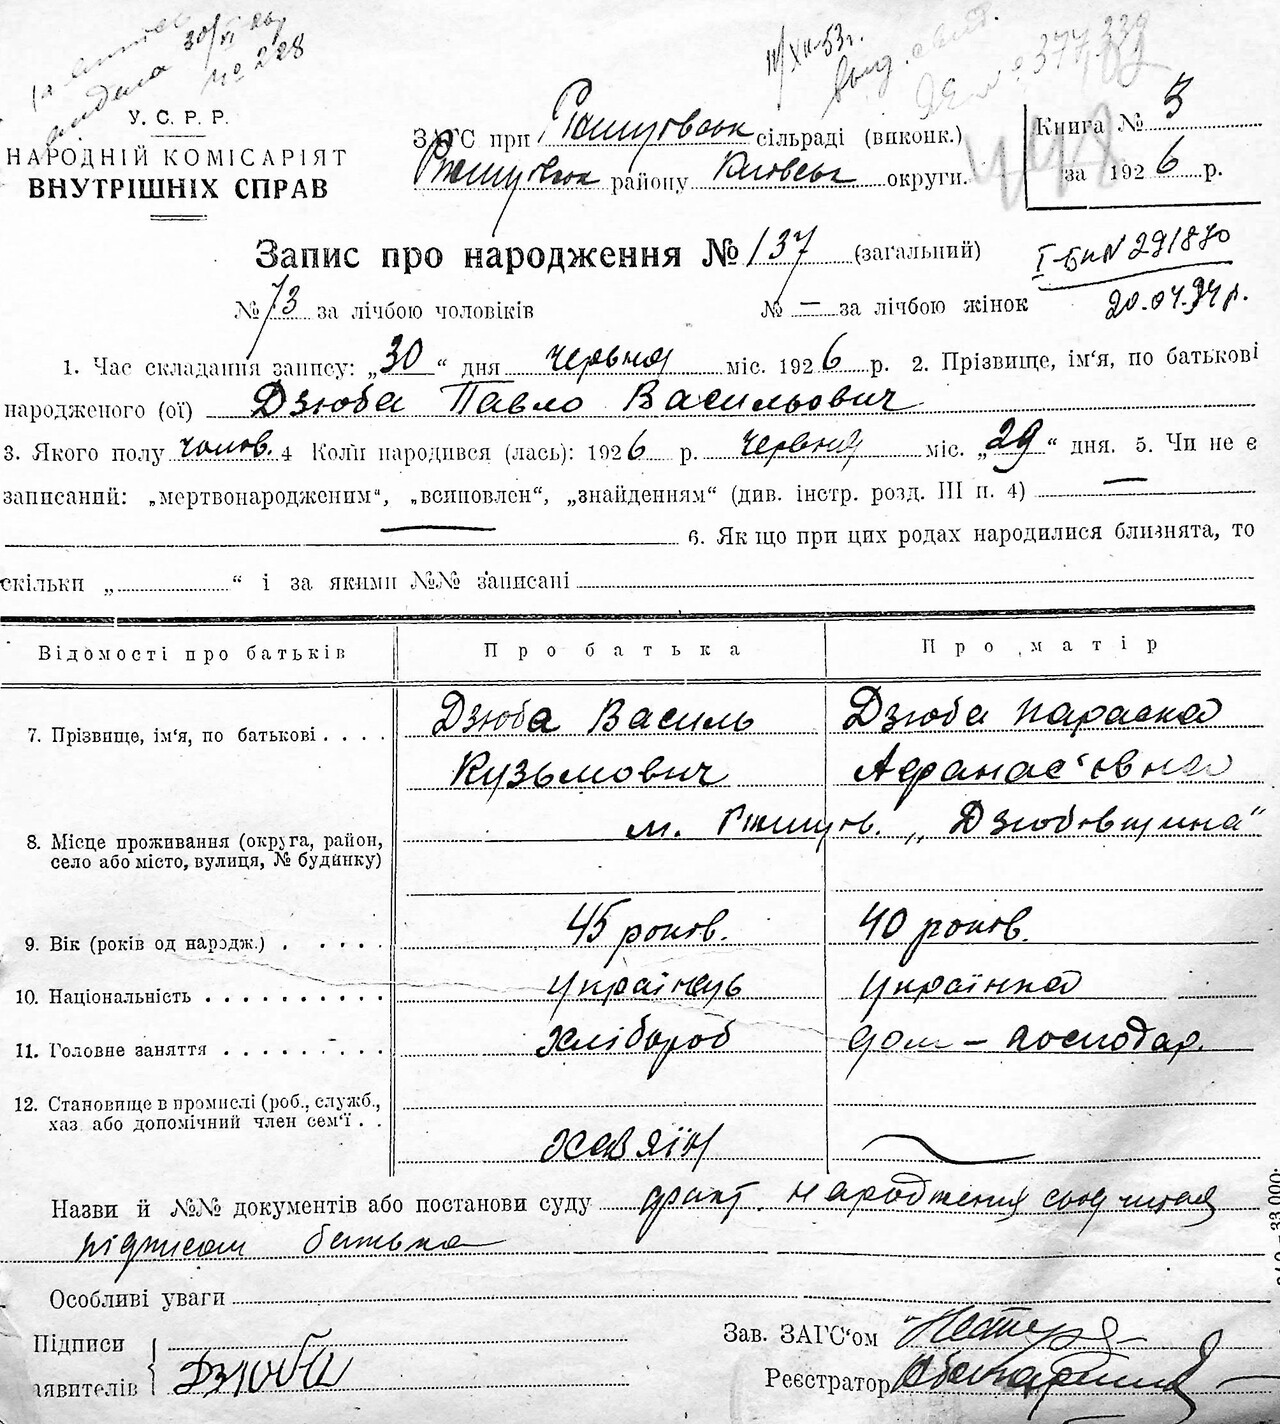 30/VI
№ 228
11/XII-53г.
У. С. Р. Р.
НАРОДНІЙ КОМІСАРІЯТ
ВНУТРІШНІХ СПРАВ
ЗАГС при Ржищівськ сільраді (виконк.)
Ржищівськ району Київськ округи.
Книга № 3
за 1926 р.
Запис про народження № 137 (загальний)
І-БП N 291870
20.04.94р.
№ 73 за лічбою чоловіків № — за лічбою жінок
1. Час складання запису: „30“ дня червня міс. 1926 р. 2. Прізвище, ім'я, по батькові
народженого (ої) Дзюба Павло Васильович
3. Якого полу чолов. 4 Коли народився (лась): 1926 р. червня міс. „29“ дня. 5. Чи не є
записаний: „мертвонародженим“, „всиповлен“, „знайденням“ (див. інстр. розд. III п. 4) —
— 6. Якщо при цих родах народилися близнята, то
скільки „ “ і за якими №№ записані
Відомості про батьків Про батька Про матір
7. Прізвище, ім'я, по батькові Дзюба Василь Дзюба Параска
Кузьмович Афанас'євна
8. Місце проживання (округа, район,
село або місто, вулиця, № будинку) м. Ржищов. „Дзюбовщина“
9. Вік (років од народж.) 45 років. 40 років.
10. Національність українець українка
11. Головне заняття хлібороб дом-господар.
12. Становище в промислі (роб., служб.,
хаз або допомічний член сем'ї хазяїн —
Назви й №№ документів або постанови суду факт. народження свідчится
підписом батька
Особливі уваги
Підписи
заявителів Дзюба
Зав. ЗАГС'ом
Реєстратор